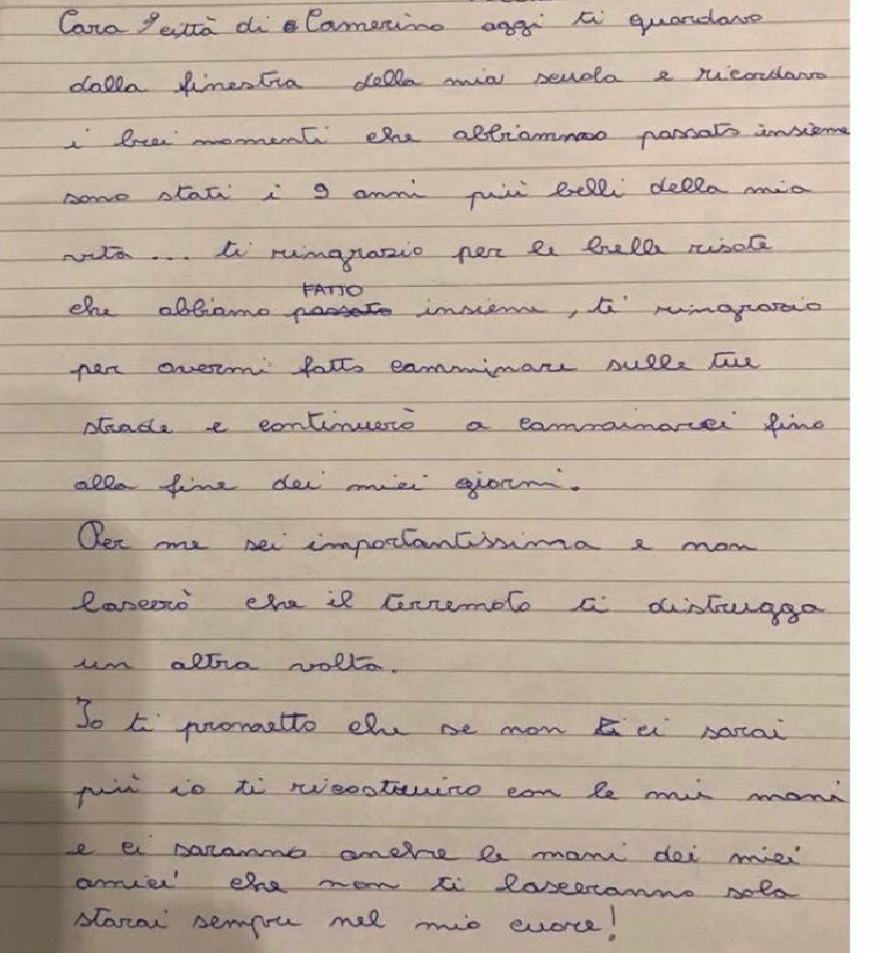 Cara città di Camerino oggi ti guardavo
dalla finestra della mia scuola e ricordavo
i bei momenti che abbiammo passato insieme
sono stati i 9 anni più belli della mia
vita... ti ringrazio per le belle risate
che abbiamo passato FATTO insieme, ti ringrazio
per avermi fatto camminare sulle tue
strade e continuerò a camminarci fino
alla fine dei miei giorni.
Per me sei importantissima e non
lascerò che il terremoto ti distrugga
un altra volta.
Io ti prometto che se non ci sarai
più io ti ricostruirò con le mie mani
e ci saranno anche le mani dei miei
amici che non ti lasceranno sola
starai sempre nel mio cuore!